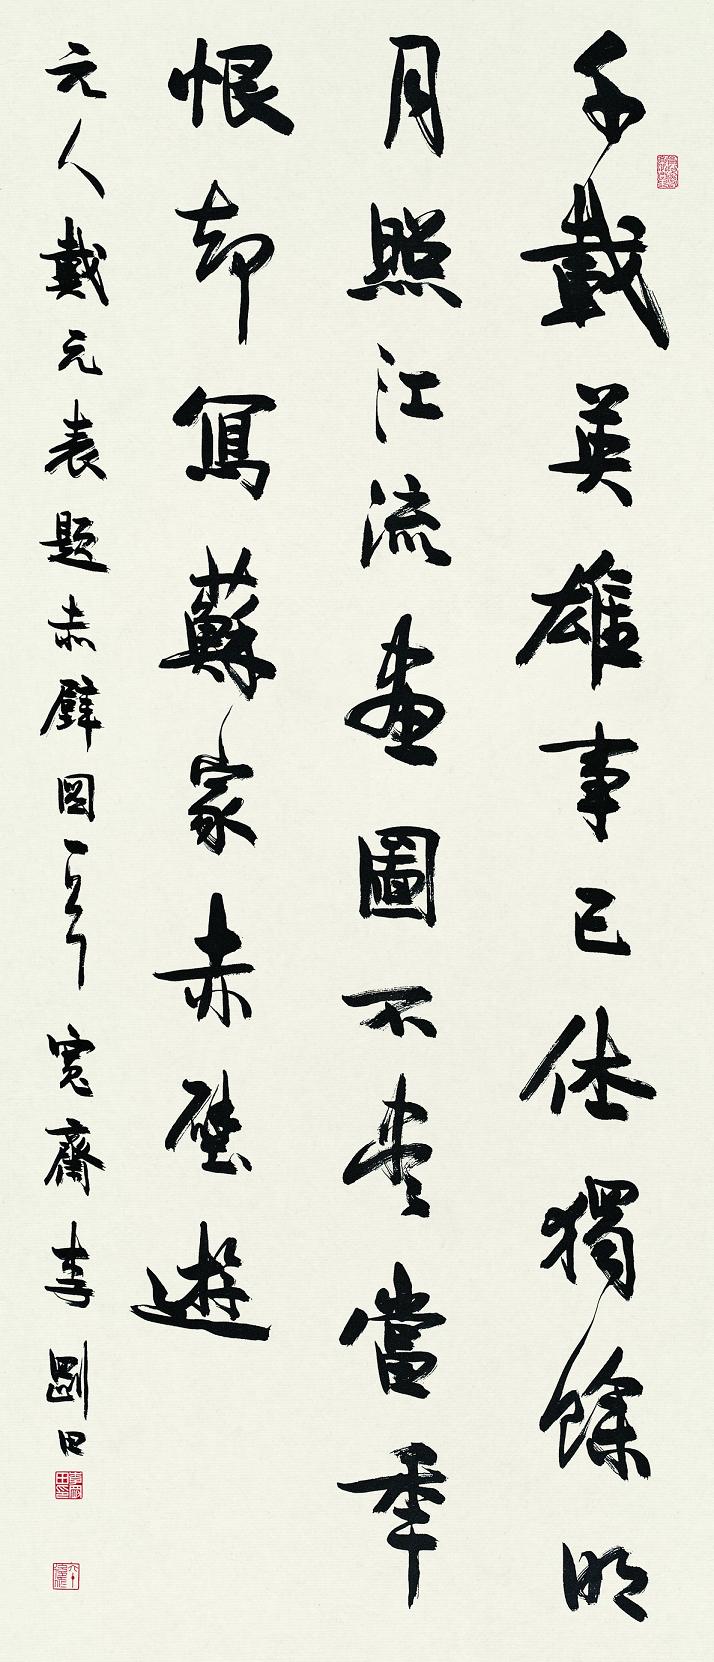 千載英雄事已休獨餘明
月照江流畫圖不盡當年
恨却寫蘇家赤壁遊
元人戴元表題赤壁図一首寬齋李剛田